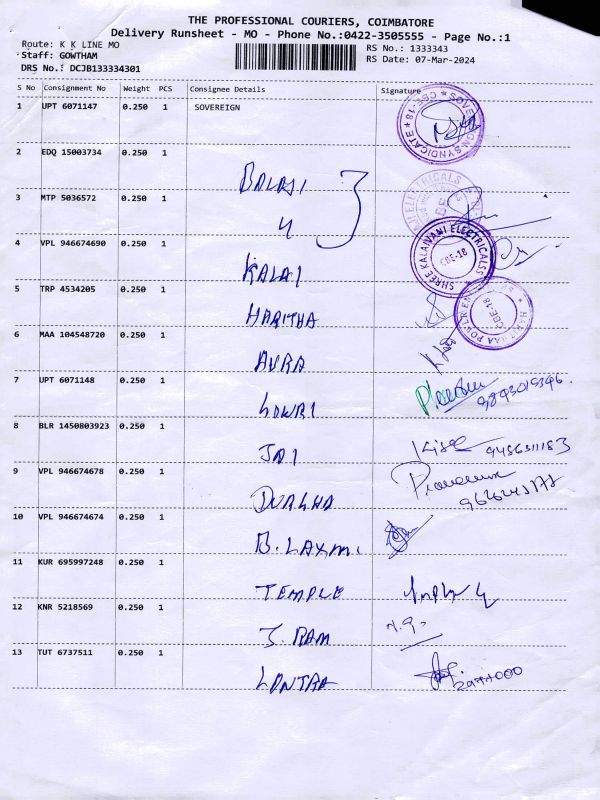 THE PROFESSIONAL COURIERS, COIMBATORE
Delivery Runsheet - MO - Phone No.:0422-3505555 - Page No.:1
Route: K K LINE MO
RS No.: 1333343
Staff: GOWTHAM
RS Date: 07-Mar-2024
DRS No.: DCJB133334301
S No Consignment No Weight PCS Consignee Details Signature
1 UPT 6071147 0.250 1 SOVEREIGN
SOVEREIGN SYNDICATE CBE-18
2 EDQ 15003734 0.250 1
BALAJI
3 MTP 5036572 0.250 1
4
ELECTRICALS
4 VPL 946674690 0.250 1
KALAI
SHREE KALAIVANI ELECTRICALS CBE-18
5 TRP 4534205 0.250 1
HARITHA
CBE-18
6 MAA 104548720 0.250 1
AURA
7 UPT 6071148 0.250 1
GOWRI
8 BLR 1450803923 0.250 1
JAI
9 VPL 946674678 0.250 1
DURGHA
10 VPL 946674674 0.250 1
B. LAXMI
11 KUR 695997248 0.250 1
TEMPLE
12 KNR 5218569 0.250 1
J. RAM
13 TUT 6737511 0.250 1